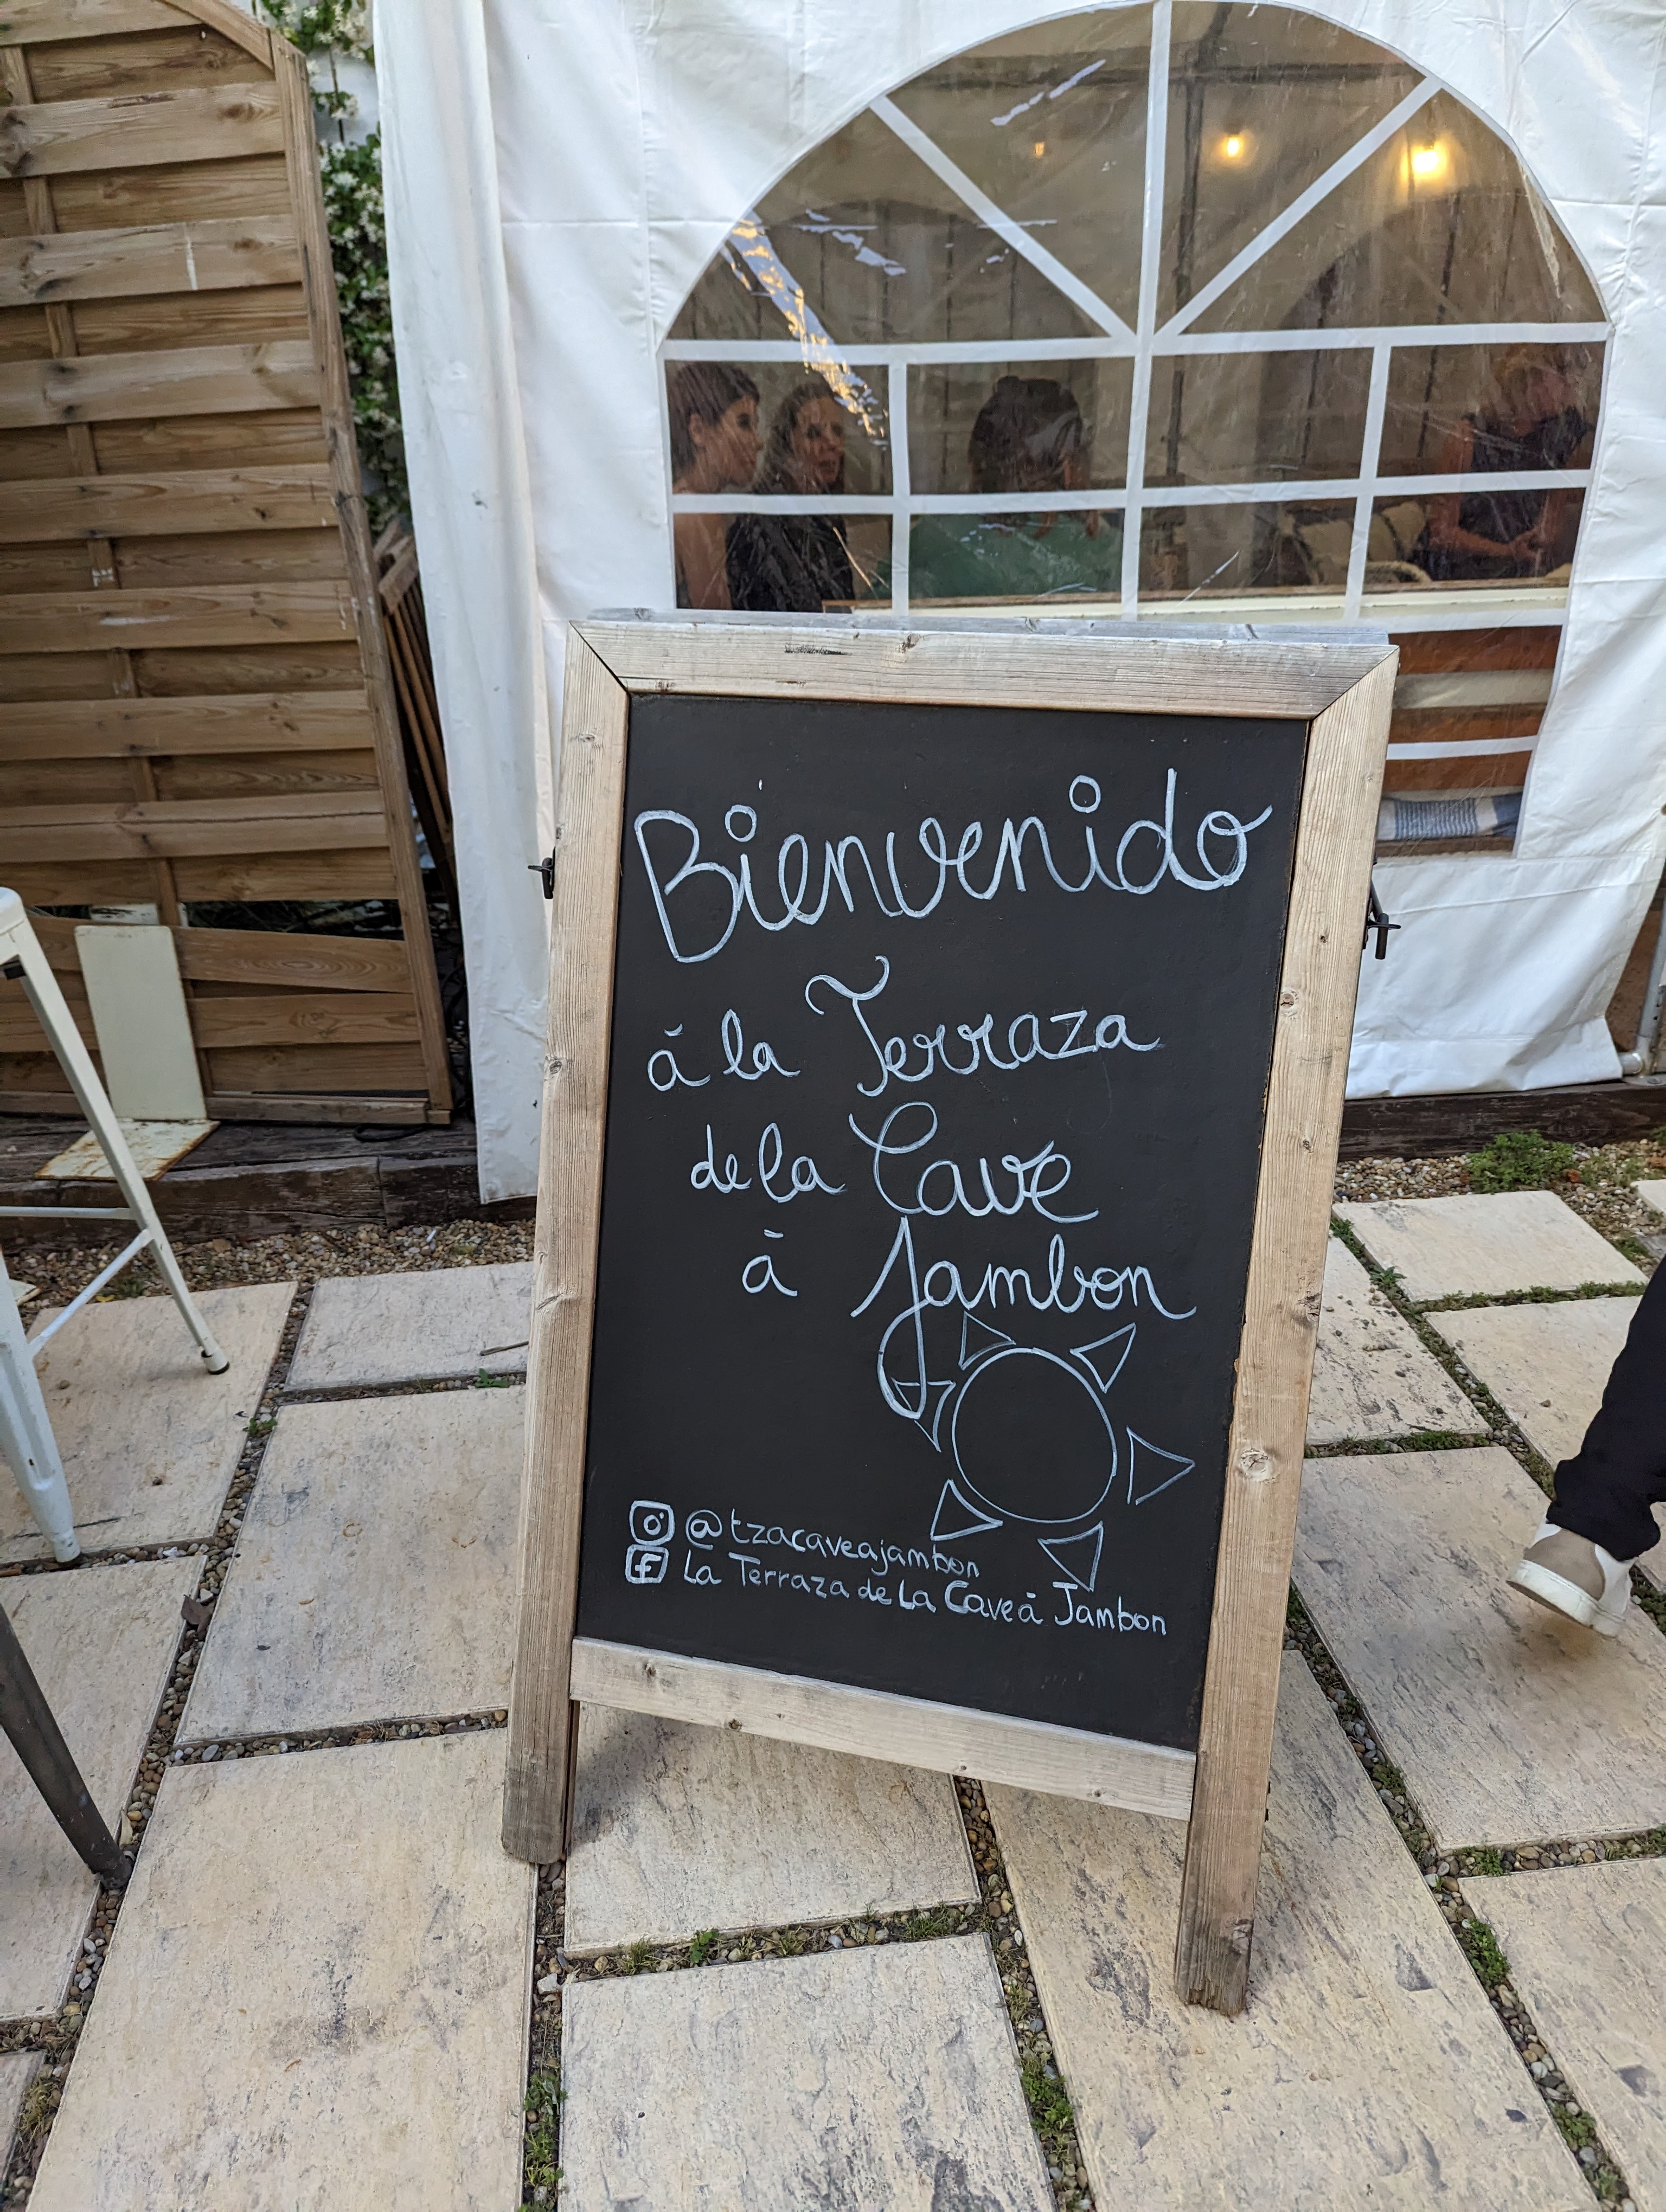 Bienvenido
à la Terraza
de la Cave
à Jambon
@tzacaveajambon
La Terraza de La Cave à Jambon